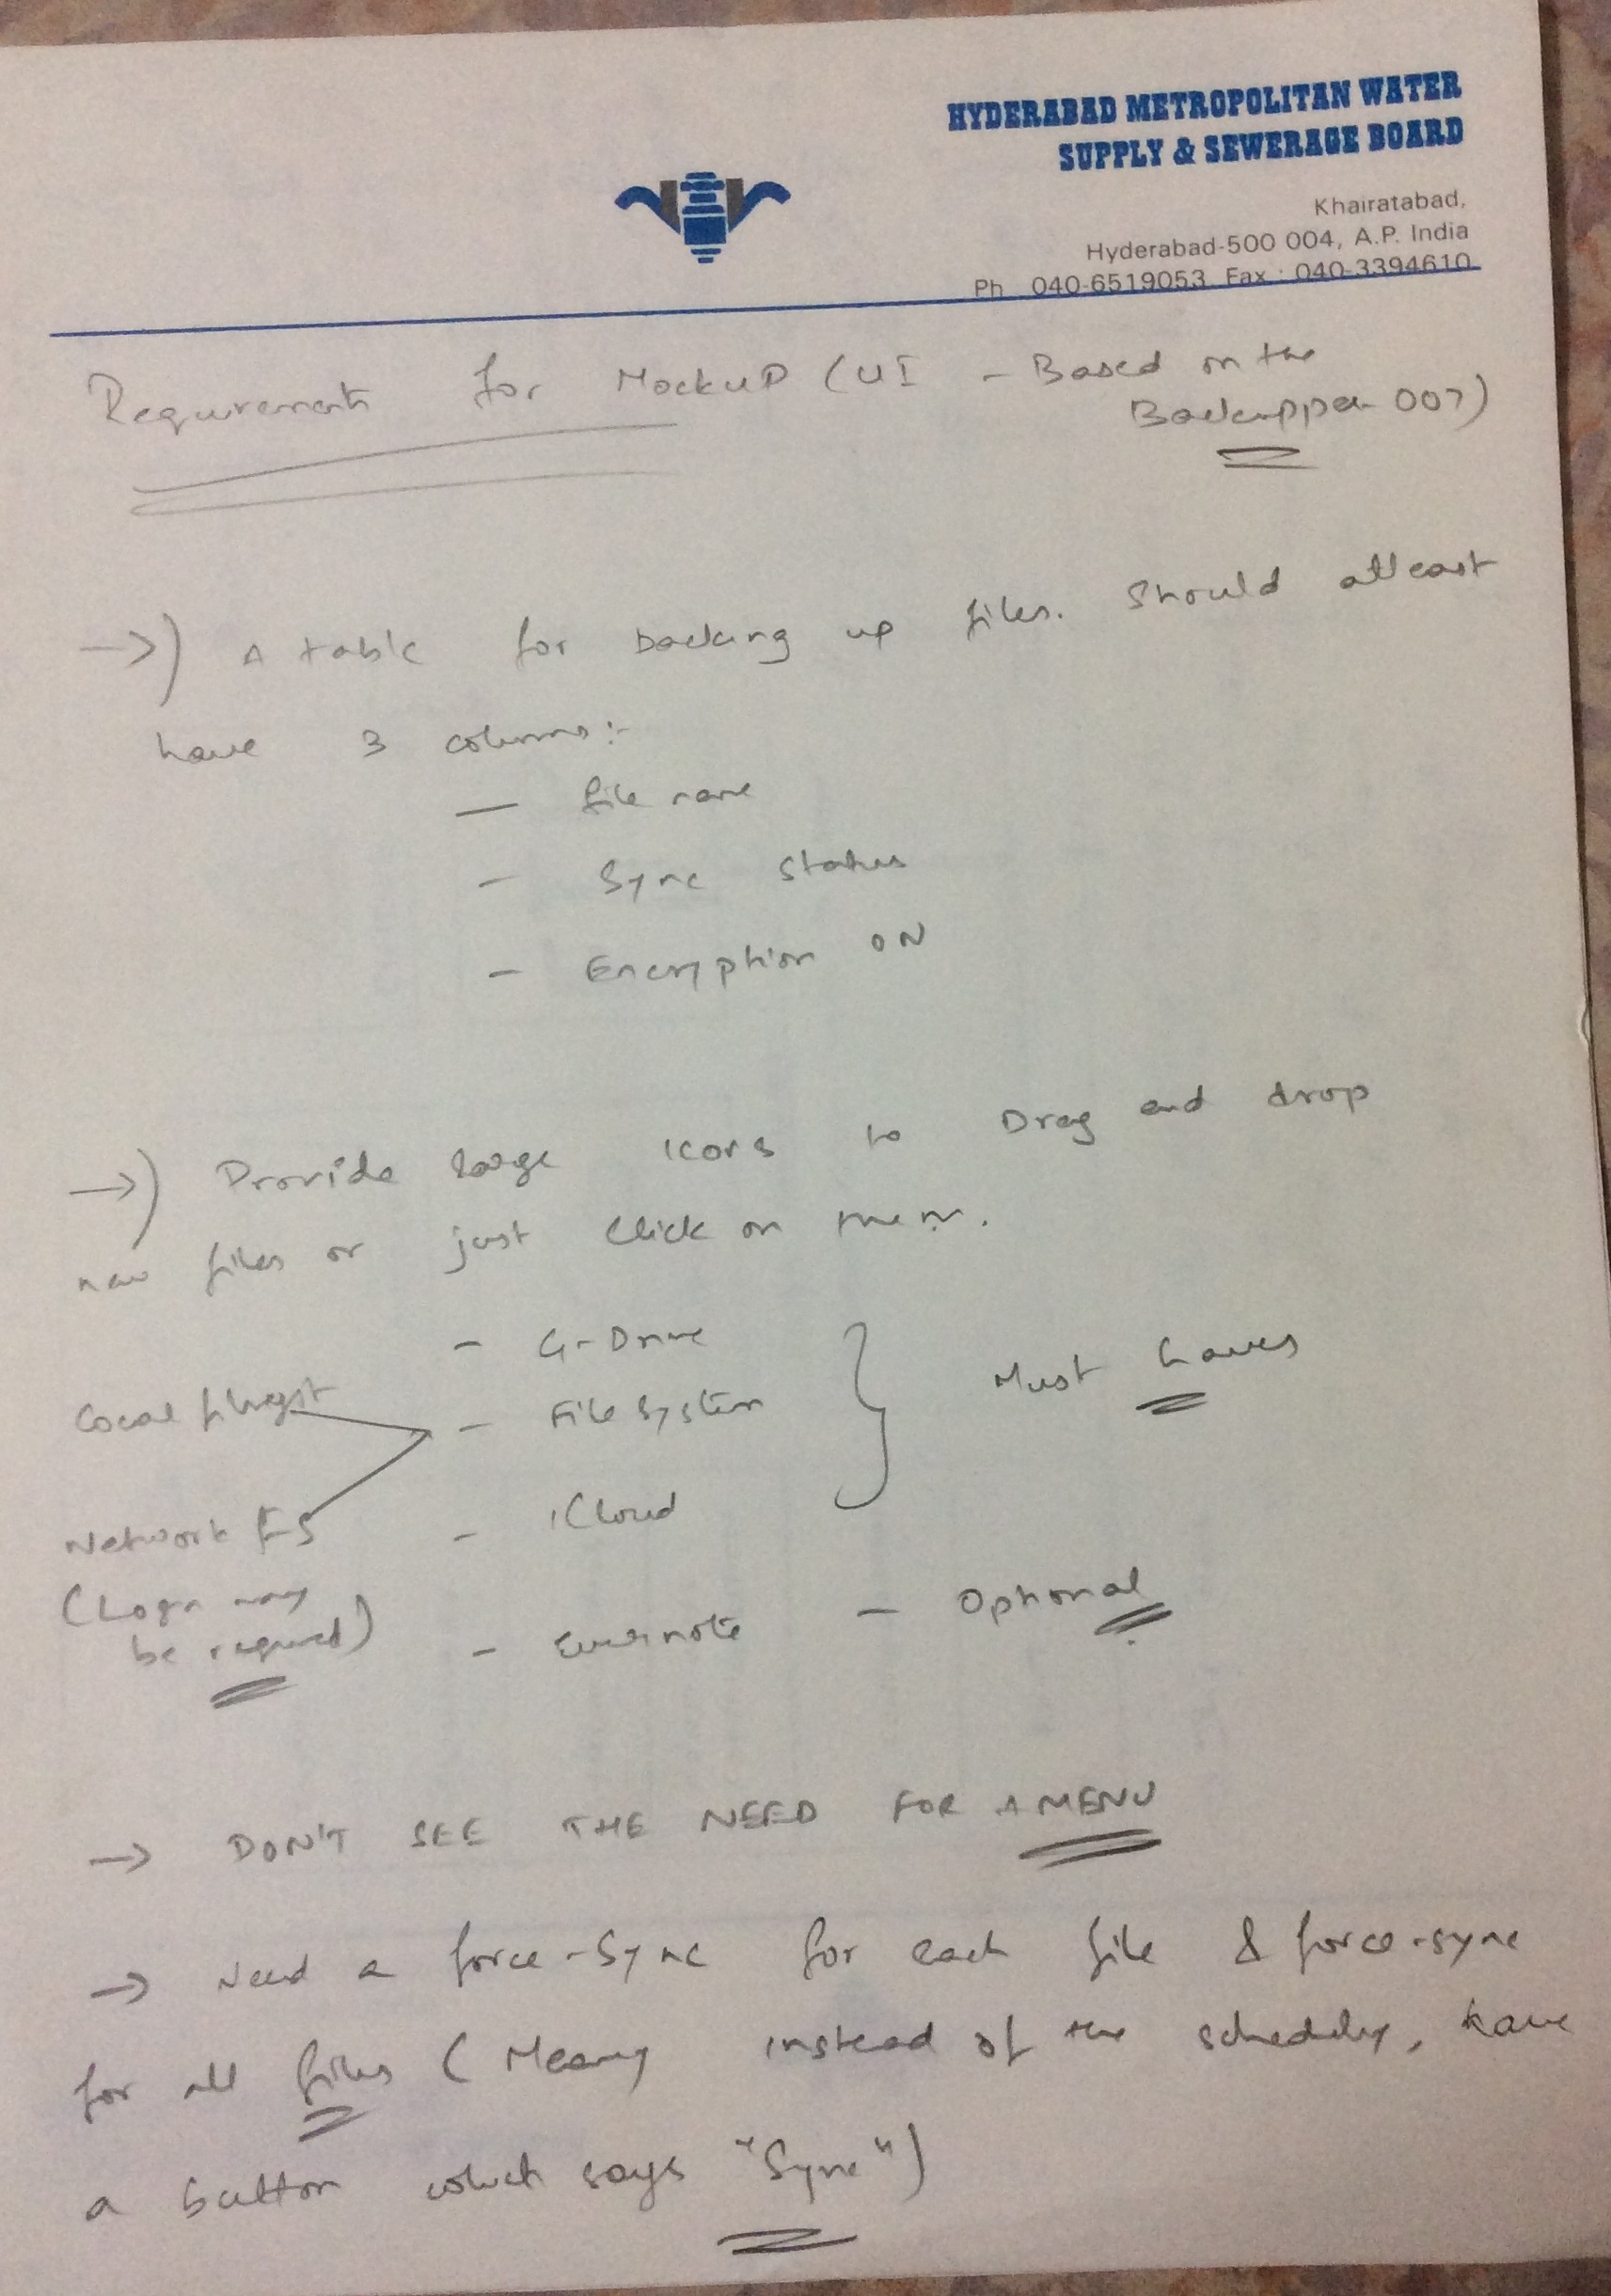 HYDERABAD METROPOLITAN WATER
SUPPLY & SEWERAGE BOARD
Khairatabad,
Hyderabad-500 004, A.P. India
Ph 040-6519053 Fax : 040-3394610
Requirements for MockUP (UI - Based on the
Backupper 007)
→) A table for backing up files. Should atleast
have 3 columns:-
— file name
- Sync status
- Encryption ON
→) Provide large icons to Drag and drop
new files or just click on them.
- G-Drive
Local
- File System
Must haves
Network FS
- iCloud
(Login may
be required)
- Evernote - Optional
→ DON'T SEE THE NEED FOR A MENU
→ Need a force-Sync for each file & force-sync
for all files ( instead of the, have
a button which says "Sync")